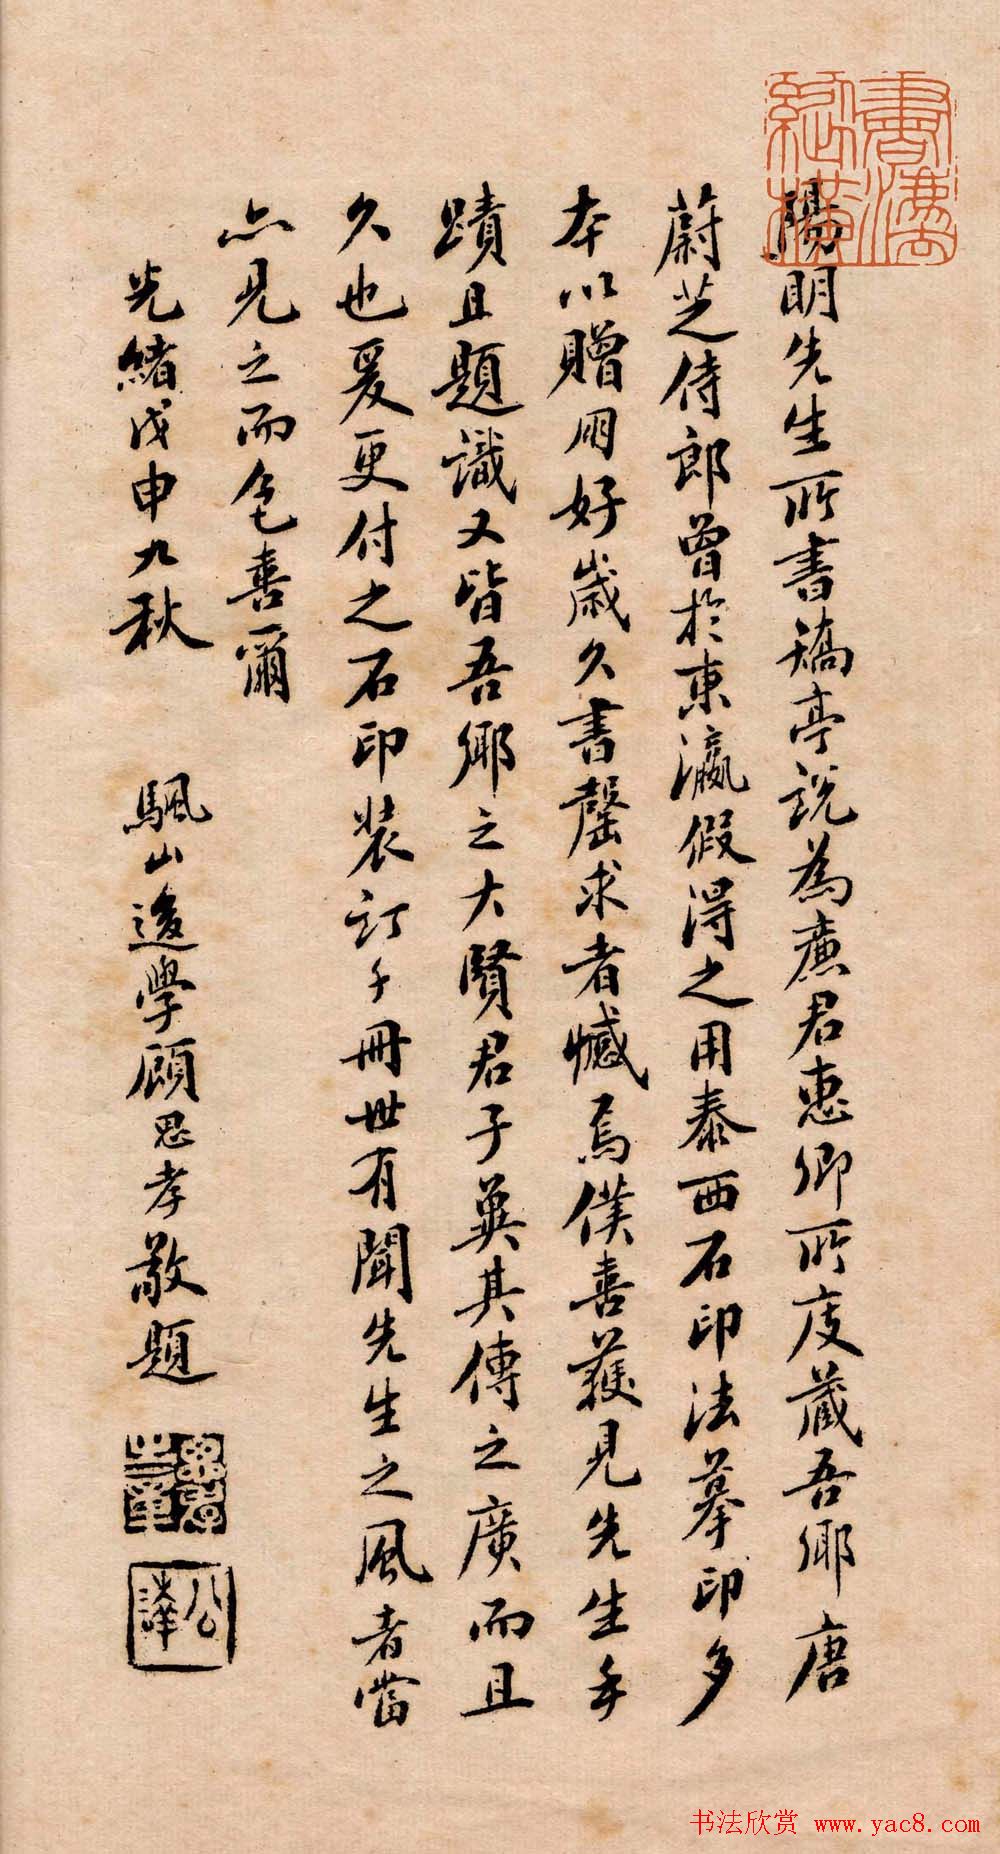 陽明先生所書矯亭說為廉君惠卿所庋藏吾鄉唐
蔚芝侍郎曾於東瀛假得之用泰西石印法摹印多
本以贈朋好歲久書罄求者憾焉僕喜獲見先生手
蹟且題識又皆吾鄉之大賢君子冀其傳之廣而且
久也爰更付之石印裝訂千冊世有聞先生之風者當
亦見之而色喜爾
光緒戊申九秋
颿山後學顧思孝敬題
書法欣賞 www.yac8.com